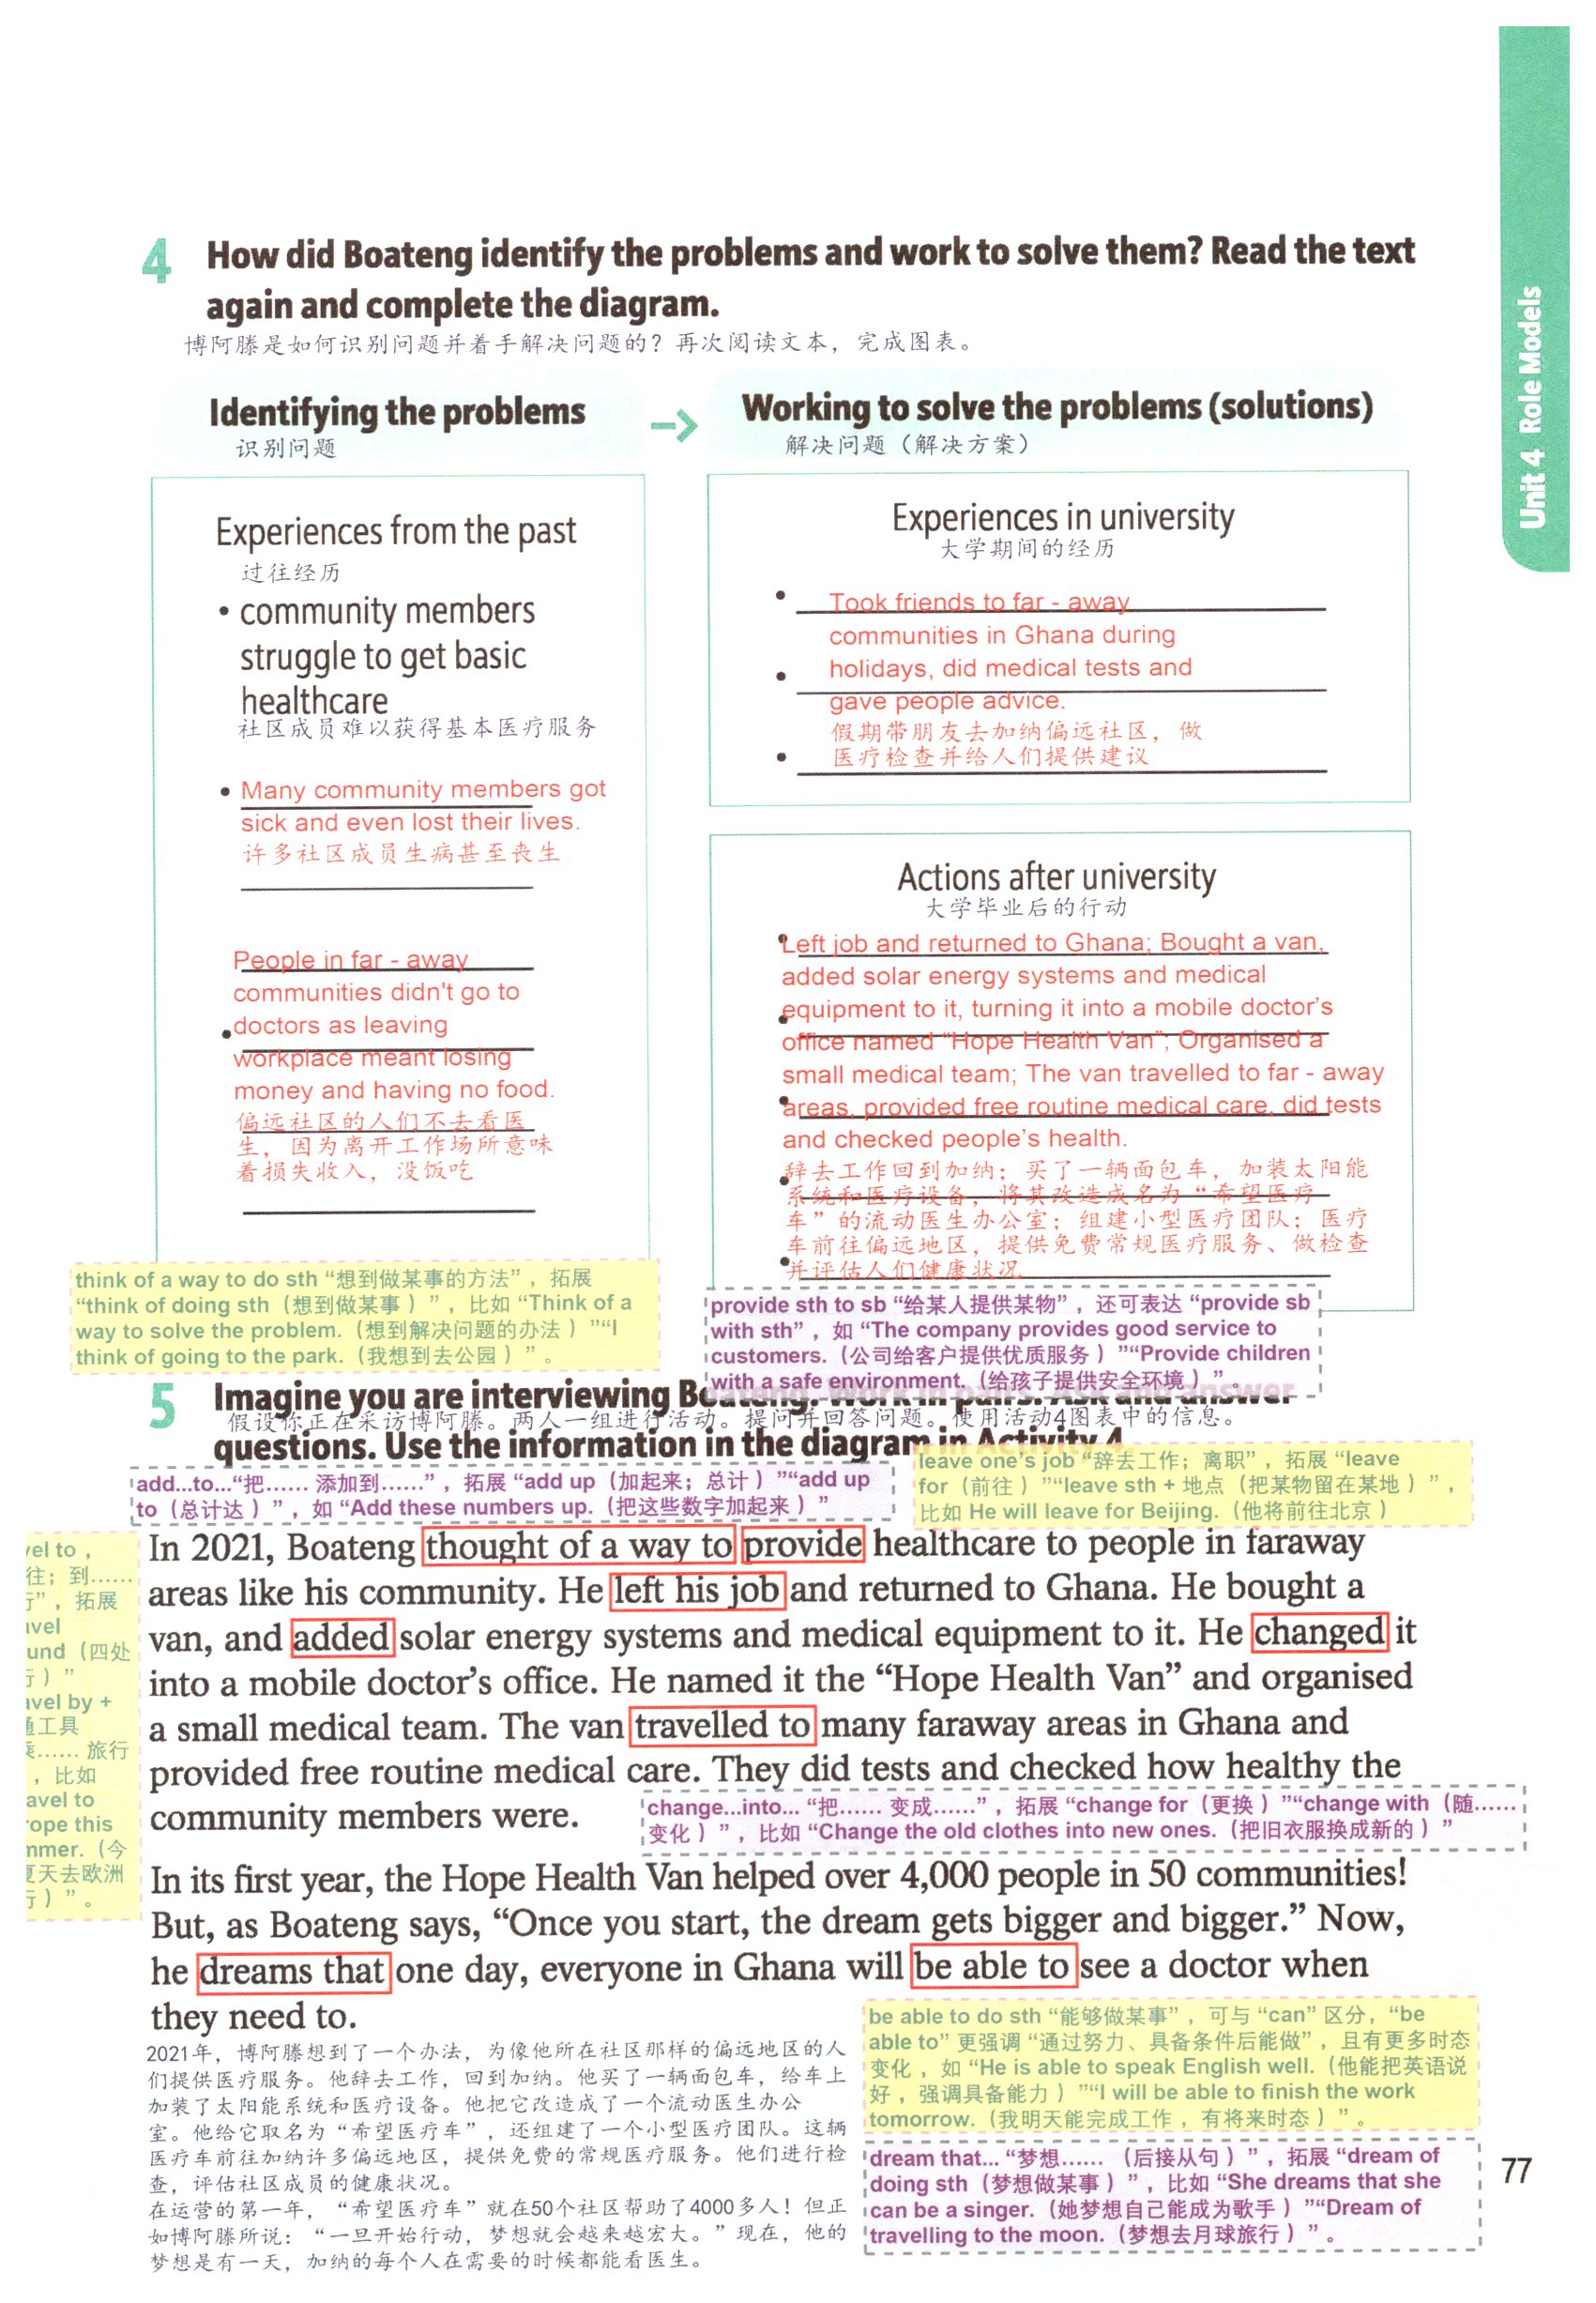 Unit 4 Role Models
4 How did Boateng identify the problems and work to solve them? Read the text
again and complete the diagram.
博阿滕是如何识别问题并着手解决问题的？再次阅读文本，完成图表。
Identifying the problems
识别问题
Working to solve the problems (solutions)
解决问题（解决方案）
Experiences from the past
过往经历
• community members
struggle to get basic
healthcare
社区成员难以获得基本医疗服务
• Many community members got
sick and even lost their lives.
许多社区成员生病甚至丧生
People in far - away
communities didn't go to
• doctors as leaving
workplace meant losing
money and having no food.
偏远社区的人们不去看医
生，因为离开工作场所意味
着损失收入，没饭吃
Experiences in university
大学期间的经历
• Took friends to far - away
communities in Ghana during
• holidays, did medical tests and
gave people advice.
假期带朋友去加纳偏远社区，做
• 医疗检查并给人们提供建议
Actions after university
大学毕业后的行动
• Left job and returned to Ghana; Bought a van,
added solar energy systems and medical
• equipment to it, turning it into a mobile doctor's
office named “Hope Health Van”; Organised a
small medical team; The van travelled to far - away
• areas, provided free routine medical care, did tests
and checked people's health.
• 辞去工作回到加纳；买了一辆面包车，加装太阳能
系统和医疗设备，将其改造成名为“希望医疗
车”的流动医生办公室；组建小型医疗团队；医疗
车前往偏远地区，提供免费常规医疗服务、做检查
• 并评估人们健康状况
think of a way to do sth “想到做某事的方法”，拓展
“think of doing sth（想到做某事）”，比如 “Think of a
way to solve the problem.（想到解决问题的办法）”“I
think of going to the park.（我想到去公园）”。
provide sth to sb “给某人提供某物”，还可表达 “provide sb
with sth”，如 “The company provides good service to
customers.（公司给客户提供优质服务）”“Provide children
with a safe environment.（给孩子提供安全环境）”。
5 Imagine you are interviewing Boateng. Work in pairs. Ask and answer
假设你正在采访博阿滕。两人一组进行活动。提问并回答问题。使用活动4图表中的信息。
questions. Use the information in the diagram in Activity 4.
add...to...“把…… 添加到……”，拓展 “add up（加起来；总计）”“add up
to（总计达）”，如 “Add these numbers up.（把这些数字加起来）”
leave one's job “辞去工作；离职”，拓展 “leave
for（前往）”“leave sth + 地点（把某物留在某地）”，
比如 He will leave for Beijing.（他将前往北京）
In 2021, Boateng thought of a way to provide healthcare to people in faraway
areas like his community. He left his job and returned to Ghana. He bought a
van, and added solar energy systems and medical equipment to it. He changed it
into a mobile doctor's office. He named it the “Hope Health Van” and organised
a small medical team. The van travelled to many faraway areas in Ghana and
provided free routine medical care. They did tests and checked how healthy the
community members were.
vel to，
往；到……
”，拓展
avel
und（四处
）”
avel by +
通工具
…… 旅行
，比如
avel to
rope this
mmer.（今
夏天去欧洲
）”。
change...into... “把…… 变成……”，拓展 “change for（更换）”“change with（随……
变化）”，比如 “Change the old clothes into new ones.（把旧衣服换成新的）”
In its first year, the Hope Health Van helped over 4,000 people in 50 communities!
But, as Boateng says, “Once you start, the dream gets bigger and bigger.” Now,
he dreams that one day, everyone in Ghana will be able to see a doctor when
they need to.
2021年，博阿滕想到了一个办法，为像他所在社区那样的偏远地区的人
们提供医疗服务。他辞去工作，回到加纳。他买了一辆面包车，给车上
加装了太阳能系统和医疗设备。他把它改造成了一个流动医生办公
室。他给它取名为“希望医疗车”，还组建了一个小型医疗团队。这辆
医疗车前往加纳许多偏远地区，提供免费的常规医疗服务。他们进行检
查，评估社区成员的健康状况。
在运营的第一年，“希望医疗车”就在50个社区帮助了4000多人！但正
如博阿滕所说：“一旦开始行动，梦想就会越来越宏大。”现在，他的
梦想是有一天，加纳的每个人在需要的时候都能看医生。
be able to do sth “能够做某事”，可与 “can” 区分，“be
able to” 更强调 “通过努力、具备条件后能做”，且有更多时态
变化，如 “He is able to speak English well.（他能把英语说
好，强调具备能力）”“I will be able to finish the work
tomorrow.（我明天能完成工作，有将来时态）”。
dream that... “梦想……（后接从句）”，拓展 “dream of
doing sth（梦想做某事）”，比如 “She dreams that she
can be a singer.（她梦想自己能成为歌手）”“Dream of
travelling to the moon.（梦想去月球旅行）”。
77